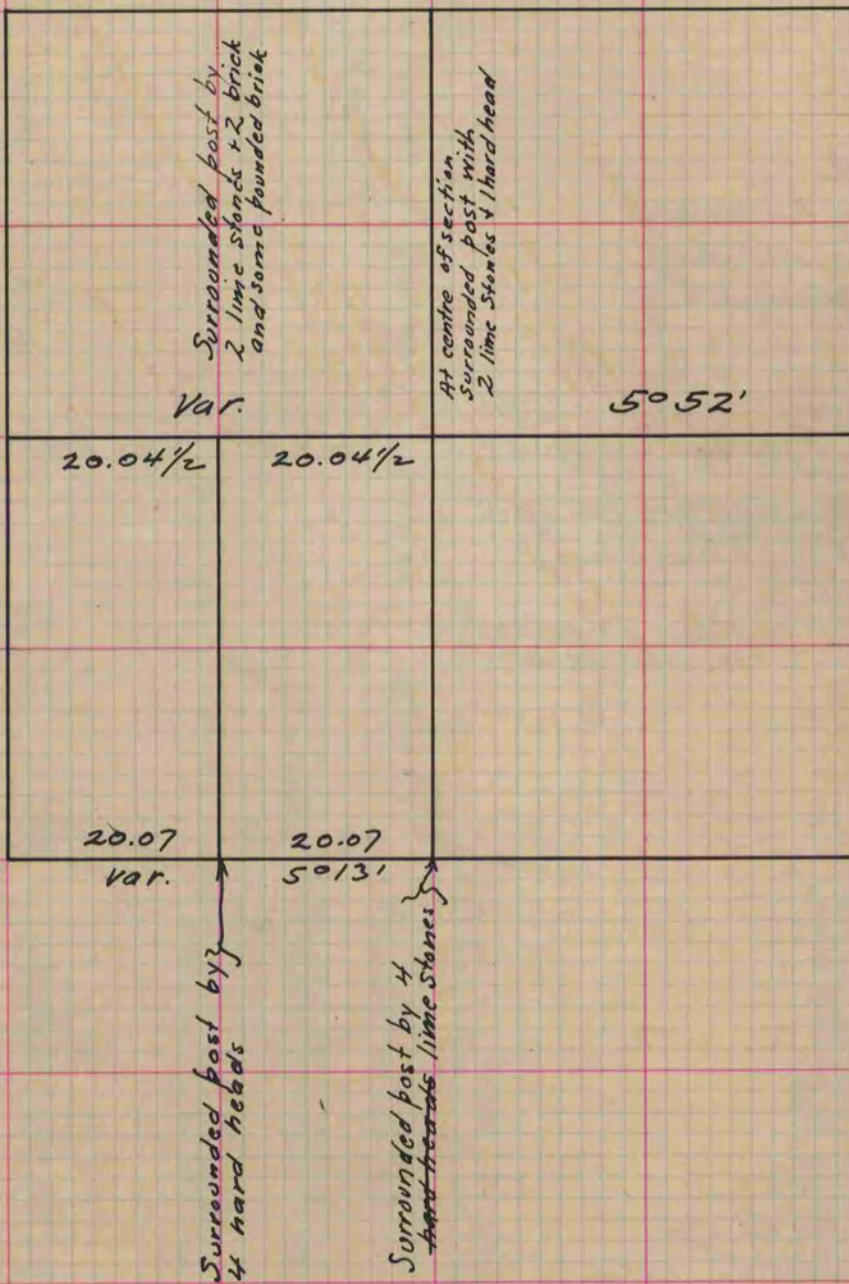 Surrounded post by
2 lime stones + 2 brick
and some pounded brick
At centre of section
surrounded post with
2 lime stones + 1 hard head
Var.
5° 52'
20.04 1/2
20.04 1/2
20.07
20.07
Var.
5° 13'
Surrounded post by
4 hard heads
Surrounded post by 4
hard heads lime stones